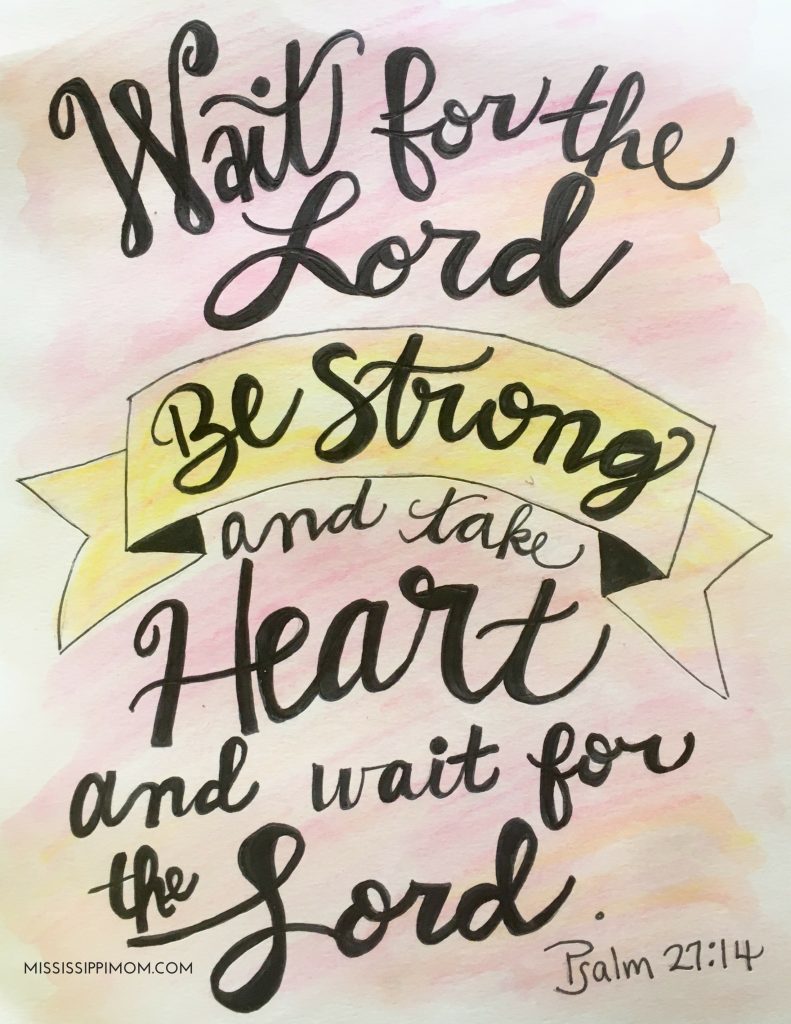 Wait for the
Lord
Be Strong
and take
Heart
and wait for
the Lord.
Psalm 27:14
MISSISSIPPIMOM.COM